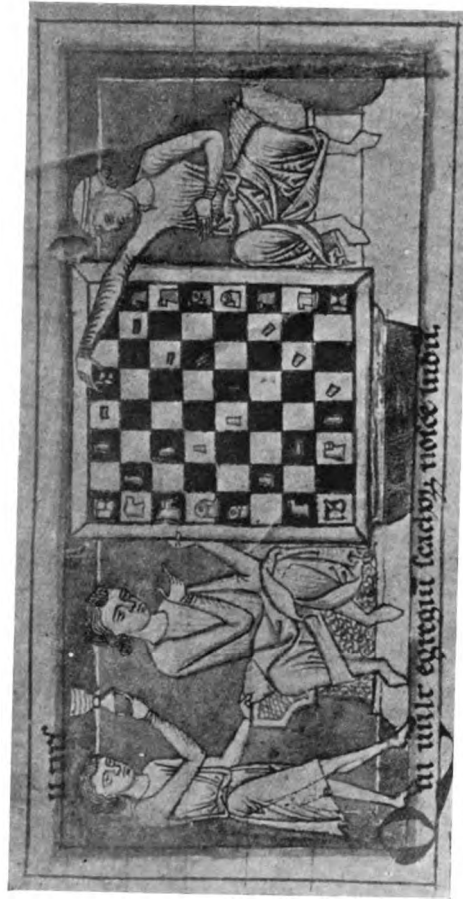 Qui uult egregiū ſcacoꝝ noſce ludū.